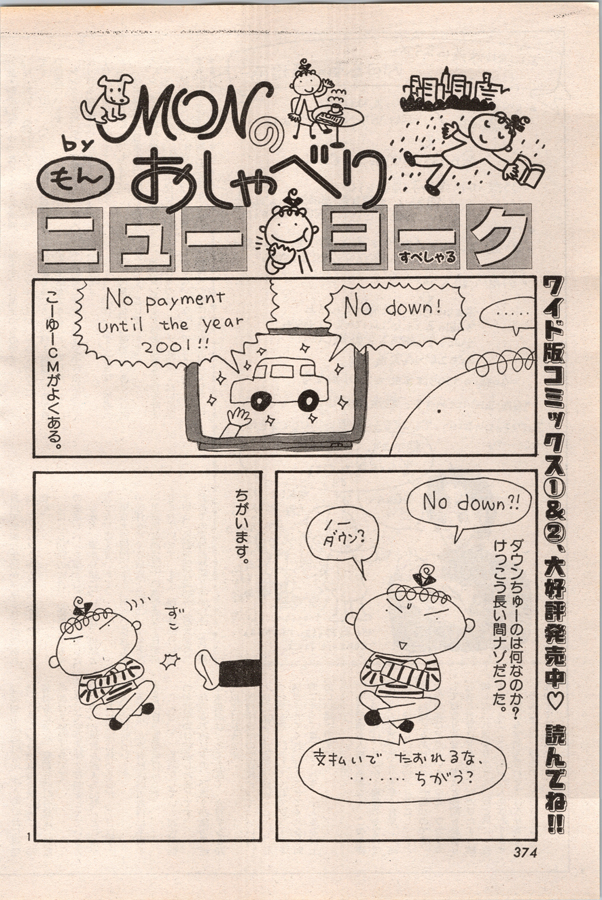 MONの
by
もん
おしゃべり
ニューヨーク
すぺしゃる
ワイド版コミックス①&②、大好評発売中♡ 読んでね!!
‥‥‥
No down!
No payment
until the year
2001!!
こーゆーCMがよくある。
No down?!
ダウンちゅーのは何なのか?
けっこう長い間ナゾだった。
ノー
ダウン?
支払いで たおれるな、
‥‥‥‥ ちがう?
ちがいます。
ずこ
1
374